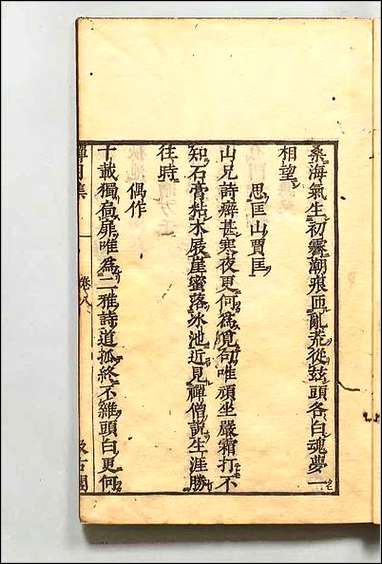 桑海氣生初霽潮痕匝亂荒從玆頭各白魂夢一
相望
思匡山賈匡
山兄詩癖甚寒夜更何爲覓句唯頑坐嚴霜打不
知石膏粘木屐崖蜜落冰池近見禪僧説生涯勝
往時
偶作
十載獨扃扉唯爲二雅詩道孤終不雜頭白更何
禪月集 卷八 汲古閣